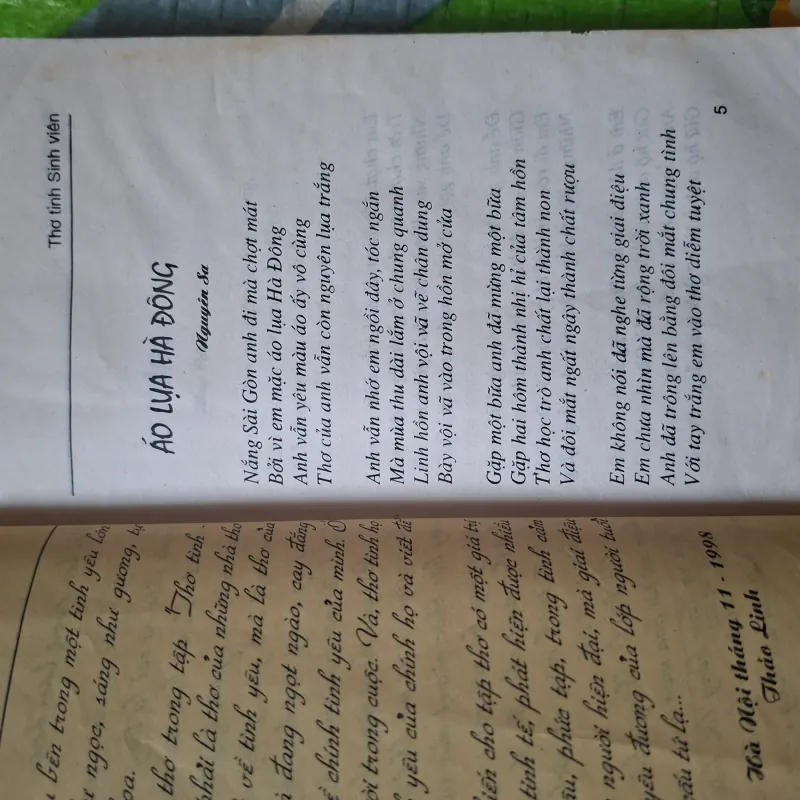 lên trong một tình yêu lớn
ngọc, sáng như gương, tự
hoa.
thơ trong tập "Thơ tình
phải là thơ của những nhà thơ
về tình yêu, mà là thơ của
đang ngọt ngào, cay đắng
chính tình yêu của mình.
trong cuộc. Và, thơ tình họ
yêu của chính họ và viết để
cho tập thơ có một giá trị
tinh tế, phát hiện được nhiều
phức tạp, trong tình cảm
người hiện đại, mà giai điệu
yêu đương của lớp người tuổi
tứ lạ...
Hà Nội tháng 11 - 1998
Thảo Linh
Thơ tình Sinh viên
ÁO LỤA HÀ ĐÔNG
Nguyên Sa
Nắng Sài Gòn anh đi mà chợt mát
Bởi vì em mặc áo lụa Hà Đông
Anh vẫn yêu màu áo ấy vô cùng
Thơ của anh vẫn còn nguyên lụa trắng
Anh vẫn nhớ em ngồi đây, tóc ngắn
Mà mùa thu dài lắm ở chung quanh
Linh hồn anh vội vã vẽ chân dung
Bày vội vã vào trong hồn mở cửa
Gặp một bữa anh đã mừng một bữa
Gặp hai hôm thành nhị hỉ của tâm hồn
Thơ học trò anh chất lại thành non
Và đôi mắt ngất ngây thành chất rượu
Em không nói đã nghe từng giai điệu
Em chưa nhìn mà đã rộng trời xanh
Anh đã trông lên bằng đôi mắt chung tình
Với tay trắng em vào thơ diễm tuyệt
5